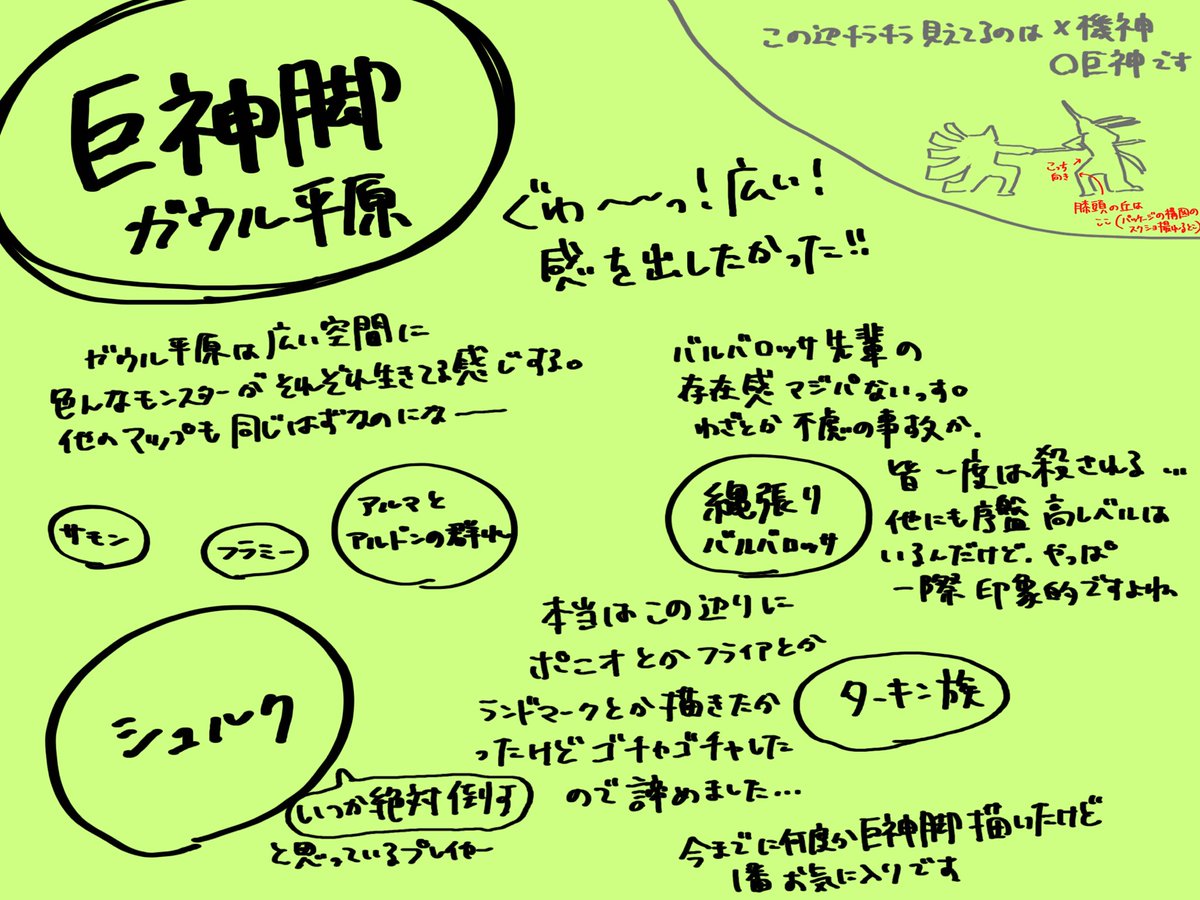 巨神脚
ガウル平原
この辺チラチラ見えてるのは×機神
○巨神です
こっち
向き
膝頭の丘は
ここ(パッケージの構図の
スクショ撮れるとこ)
ぐわ〜〜っ!広い!
感を出したかった!!
ガウル平原は広い空間に
色んなモンスターがそれぞれ生きてる感じする。
他のマップも同じはずなのになー
バルバロッサ先輩の
存在感マジパないっす。
わざとか不慮の事故か、
皆一度は殺される…
他にも序盤高レベルは
いるんだけど、やっぱ。
一際印象的ですよね
サモン
フラミー
アルマと
アルドンの群れ
縄張り
バルバロッサ
シュルク
いつか絶対倒す
と思っているプレイヤー
本当はこの辺りに
ポニオとかフライアとか
ランドマークとか描きたか
ったけどゴチャゴチャした
ので諦めました…
ターキン族
今までに何度か巨神脚描いたけど
1番お気に入りです